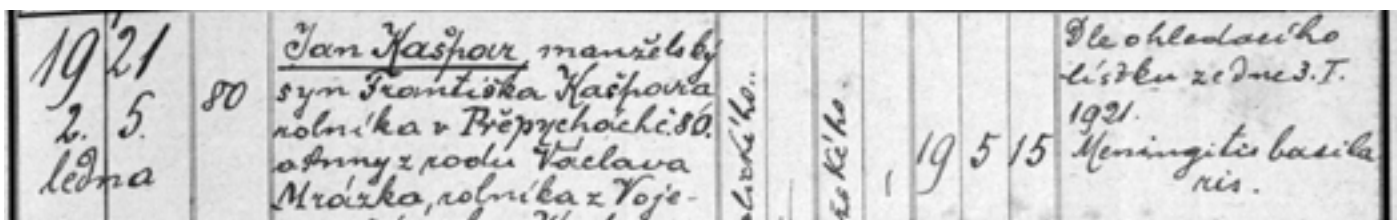 1921
2. 5.
ledna
80
Jan Kašpar, manželský
syn Františka Kašpara
rolníka v Přepychách č. 80.
a Anny z rodu Václava
Mrázka, rolníka z Voje-
19 5 15
Dle ohledacího
lístku ze dne 3. I.
1921.
Meningitis basila
ris.